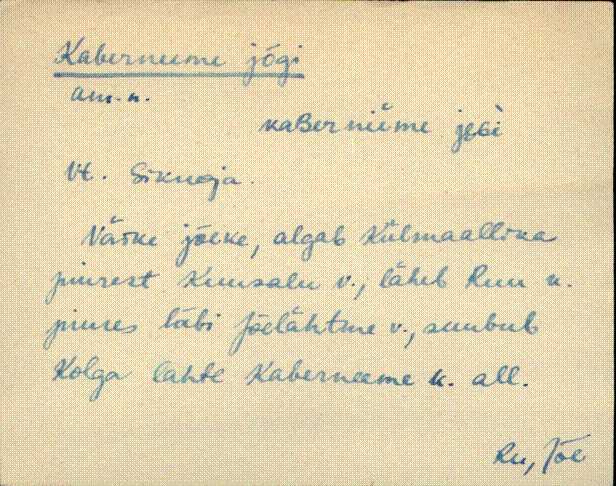 Kaberneeme jõgi
am. n.
kaBerniime jeGi
Vt. Sikuoja.
Väike jõeke, algab Külmaallika
piirest Kuusalu v., läheb Ruu k.
piires läbi Jõelähtme v., suubub
Kolga lahte Kaberneeme k. all.
Ru, Jõe